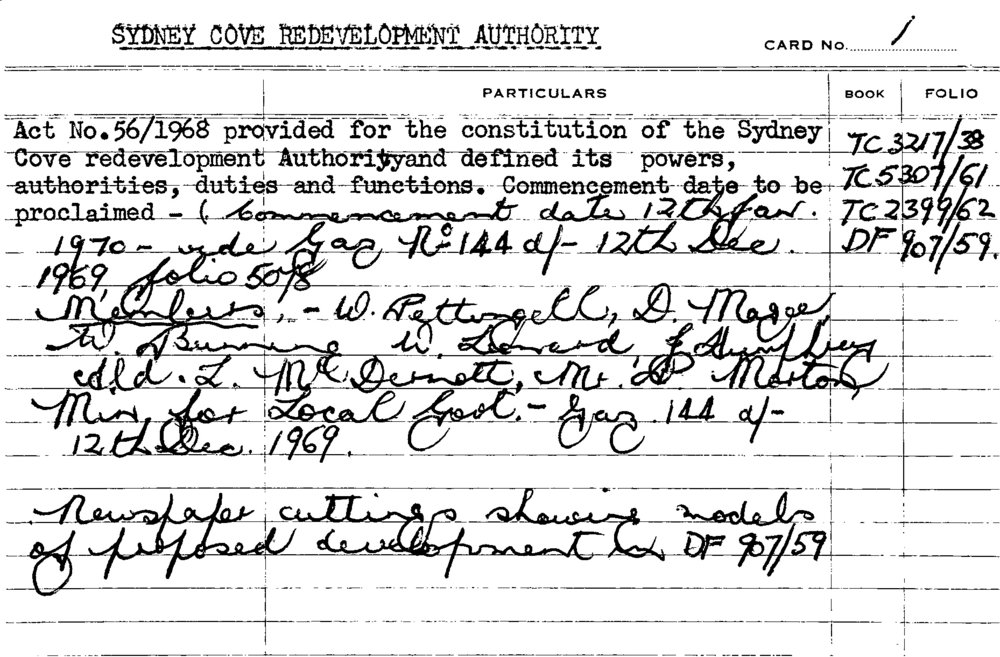 SYDNEY COVE REDEVELOPMENT AUTHORITY
CARD No. 1
PARTICULARS BOOK FOLIO
Act No.56/1968 provided for the constitution of the Sydney TC 3217/38
Cove redevelopment Authorityand defined its powers, TC 5307/61
authorities, duties and functions. Commencement date to be TC 2399/62
proclaimed - ( Commencement date 12th Jan. DF 907/59.
1970 - vide Gaz No 144 d/- 12th Dec.
1969, folio 5078
Members, - W. Pettingell, D. Magee,
W. Bunning W. Leonard, J Humphrey
Ald. L. McDermott, Mr. P Morton,
Min. for Local Govt. - Gaz 144 d/-
12th Dec. 1969.
Newspaper cuttings showing models
of proposed development in DF 907/59